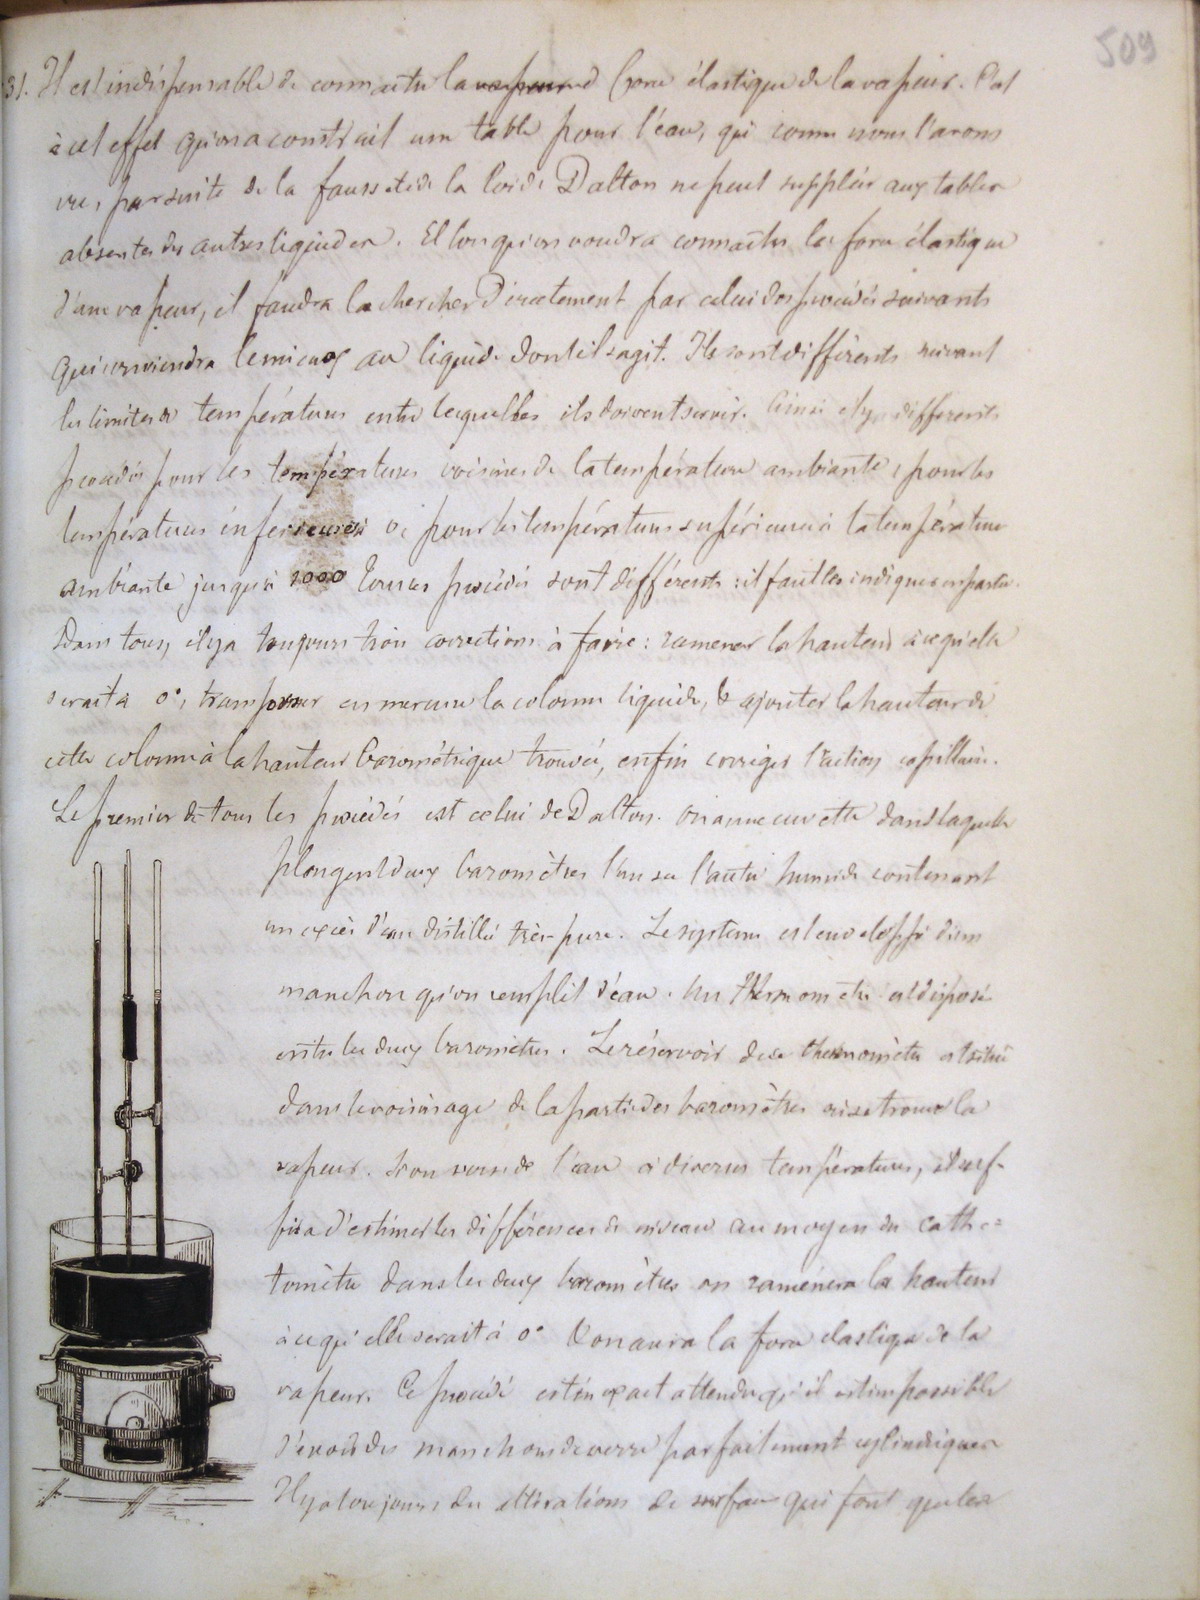 509
31. Il est indispensable de connaitre la vapeur d force élastique de la vapeur. C'est
à cet effet qu'on a construit une table pour l'eau, qui comme nous l'avons
vu, par suite de la fausseté de la loi de Dalton ne peut suppléer aux tables
absentes des autres liquides. Et lorsqu'on voudra connaitre la force élastique
d'une vapeur, il faudra la chercher directement par celui des procédés suivants
qui conviendra le mieux au liquide dont il s'agit. Ils sont différents suivant
les limites de températures entre lesquelles ils doivent servir. Ainsi il y a différents
procédés pour les températures voisines de la température ambiante, pour les
températures inférieures à 0, pour les températures supérieures à la température
ambiante jusqu'à 100° Tous ces procédés sont différents : il faut les indiquer
Dans tous, il y a toujours trois corrections à faire : ramener la hauteur à ce qu'elle
serait à 0°, transformer en mercure la colonne liquide, & ajouter la hauteur de
cette colonne à la hauteur barométrique trouvée, enfin corriger l'action capillaire.
Le premier de tous les procédés est celui de Dalton. On a une cuvette dans laquelle
plongent deux baromètres l'un sec l'autre humide contenant
un excès d'eau distillée très-pure. Le système est enveloppé d'un
manchon qu'on remplit d'eau. Un thermomètre est disposé
entre les deux baromètres. Le réservoir de ce thermomètre est situé
dans le voisinage de la partie des baromètres où se trouve la
vapeur. Si on verse de l'eau à diverses températures, il suf-
fira d'estimer les différences de niveau au moyen du cathe-
tomètre dans les deux baromètres on ramènera la hauteur
à ce qu'elle serait à 0° & on aura la force élastique de la
vapeur. Ce procédé est inexact attendu qu'il est impossible
d'avoir des manchons de verre parfaitement cylindriques
Il y a toujours des altérations de surface qui font que les